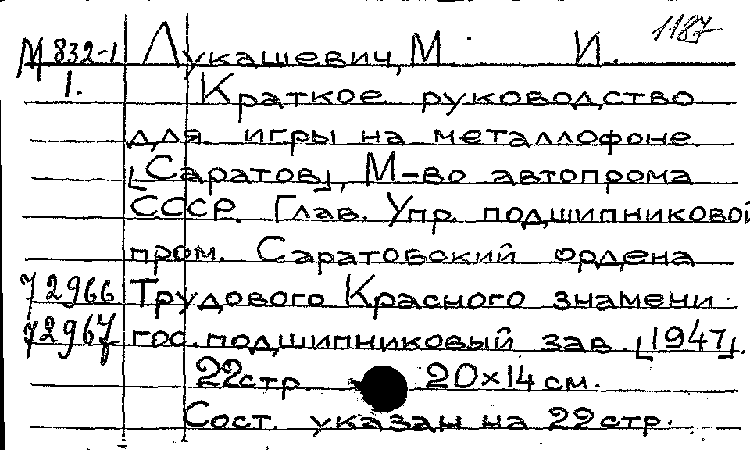 1187
М 832-1 Лукашевич, М. И.
1. Краткое руководство
для игры на металлофоне.
[Саратов], М-во автопрома
СССР. Глав. Упр. подшипниковой
пром. Саратовский ордена
72966 Трудового Красного знамени
72967 гос. подшипниковый зав. [1947].
22 стр. 20×14 см.
Сост. указан на 22 стр.